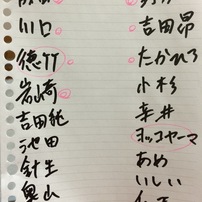 川口
徳竹
岩崎
吉田純
池田
針生
奥山
吉田昂
たかひろ
小杉
幸井
ヨッコヤーマ
あめ
いしい